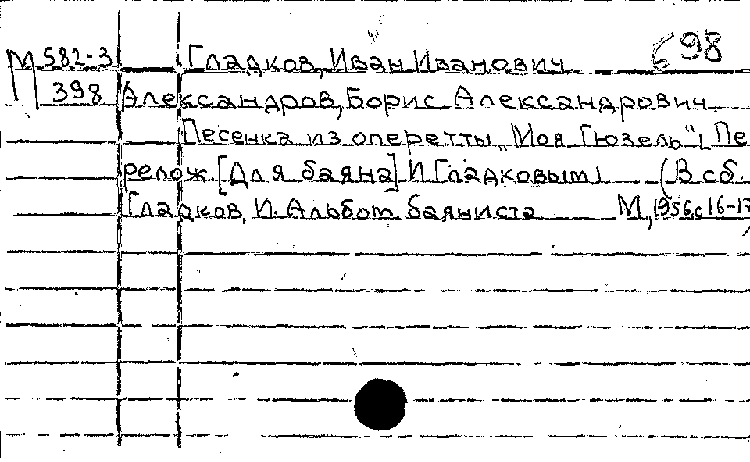 М 582-3 Гладков, Иван Иванович 698
398 Александров, Борис Александрович
Песенка из оперетты „Моя Гюзель“, Пе
релож. [Для баяна] И Гладковым) (В сб.
Гладков, И. Альбом баяниста М, 1956, с 16-17